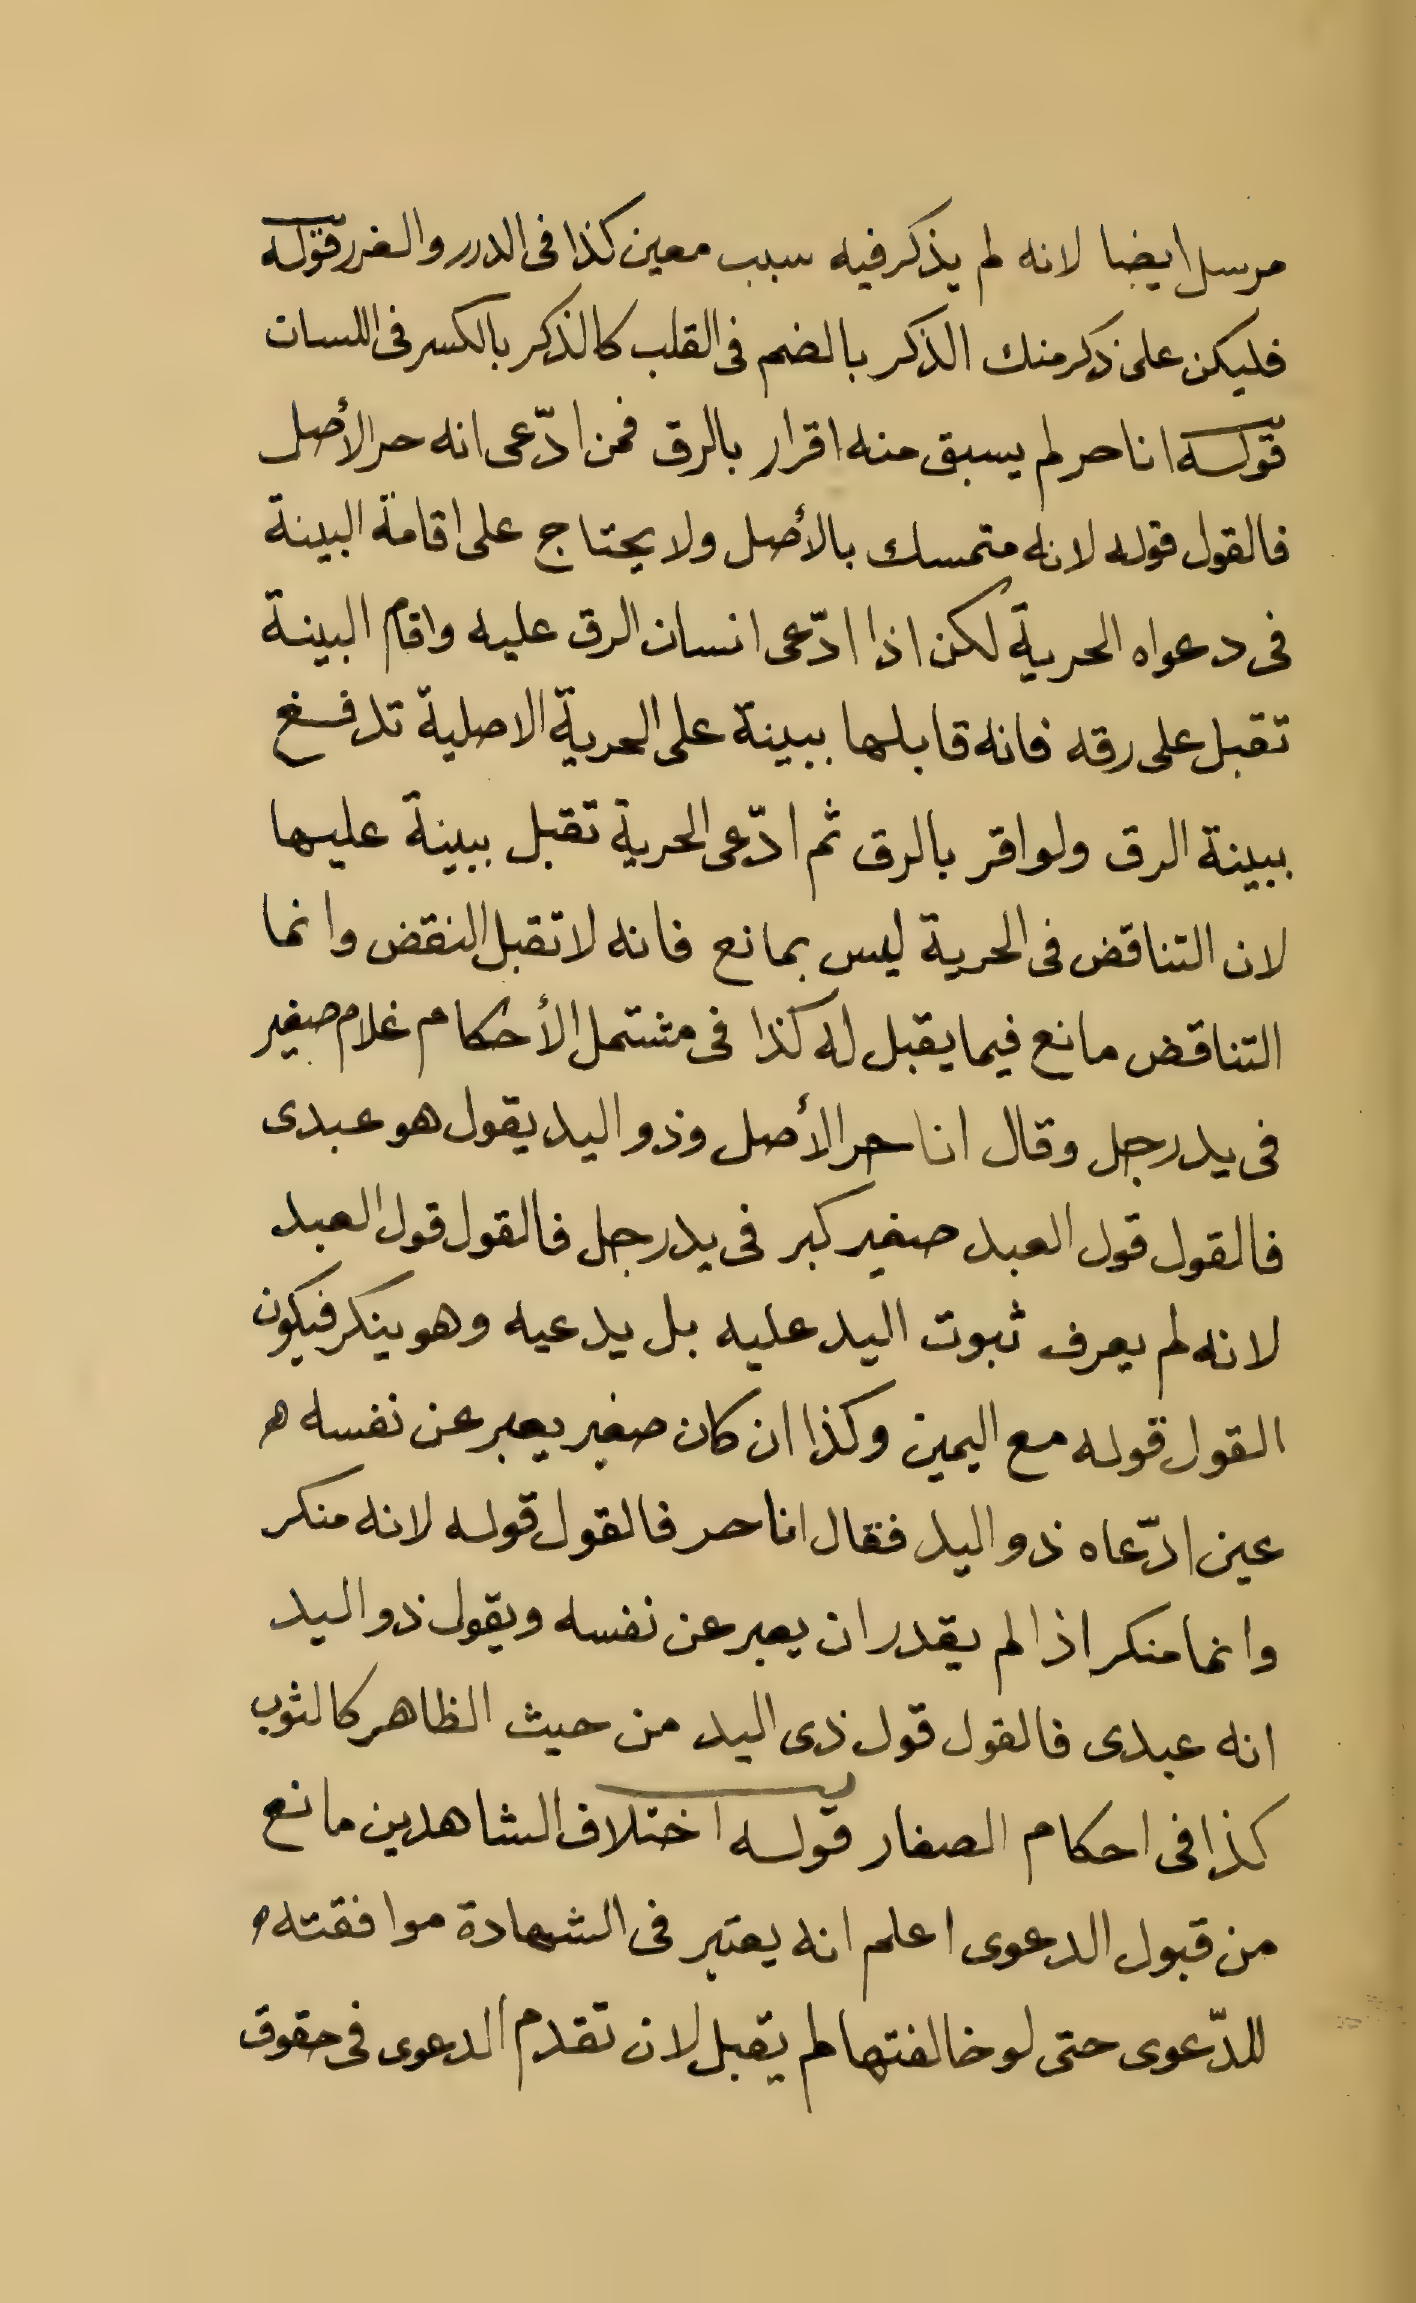 مرسل ايضا لانه لم يذكر فيه سبب معين كذا فى الدرر والغرر قوله
فليكن على ذكر منك الذكر بالضم فى القلب كالذكر بالكسر فى اللسان
قوله انا حر لم يسبق منه اقرار بالرق فمن ادّعى انه حر الأصل
فالقول قوله لانه متمسك بالأصل ولا يحتاج على اقامة البينة
فى دعواه الحرية لكن اذا ادّعى انسان الرق عليه واقام البينة
تقبل على رقه فانه قابلها ببينة على الحرية الاصلية تدفع
ببينة الرق ولو اقر بالرق ثم ادّعى الحرية تقبل ببينة عليها
لان التناقض فى الحرية ليس بمانع فانه لا تقبل النقض وانما
التناقض مانع فيما يقبل له كذا فى مشتمل الأحكام غلام صغير
فى يد رجل وقال انا حر الأصل وذو اليد يقول هو عبدى
فالقول قول العبد صغير كبر فى يد رجل فالقول قول العبد
لانه لم يعرف ثبوت اليد عليه بل يدعيه وهو ينكر فيكون
القول قوله مع اليمين وكذا ان كان صغير يعبر عن نفسه
عين ادّعاه ذو اليد فقال انا حر فالقول قوله لانه منكر
وانما منكر اذا لم يقدر ان يعبر عن نفسه ويقول ذو اليد
انه عبدى فالقول قول ذى اليد من حيث الظاهر كالثوب
كذا فى احكام الصغار قوله اختلاف الشاهدين مانع
من قبول الدعوى اعلم انه يعتبر فى الشهادة موافقته
للدّعوى حتى لو خالفتها لم يقبل لان تقدم الدعوى فى حقوق